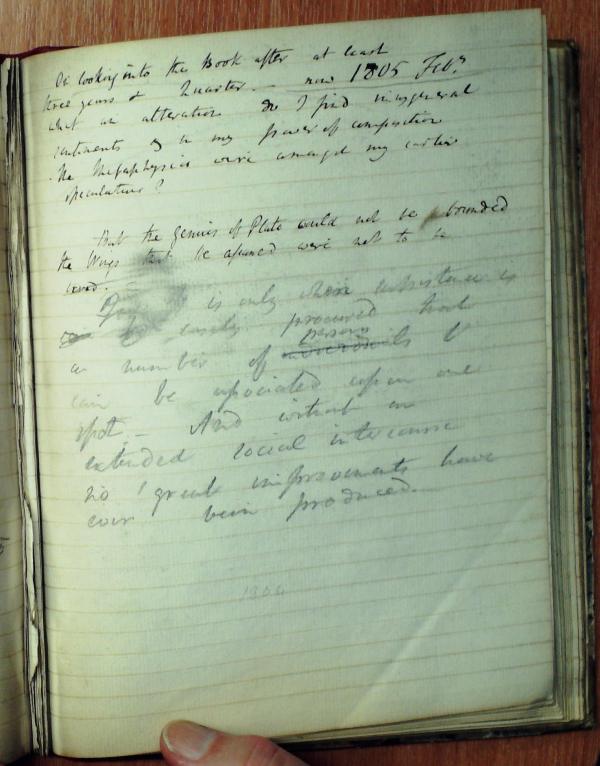 On looking into the Book after at least
three years & Quarter. — now 1805 Feby.
what an alteration do I find in my general
sentiments & in my power of composition
The Metaphysics were amongst my earlier
speculations?
That the genius of Plato would not be bounded
the Wings that he assumed were not to be
is only where subsistence is
easily procured that
a number of persons
can be associated upon one
spot. — And without an
extended social intercourse
no great improvements have
ever been produced.